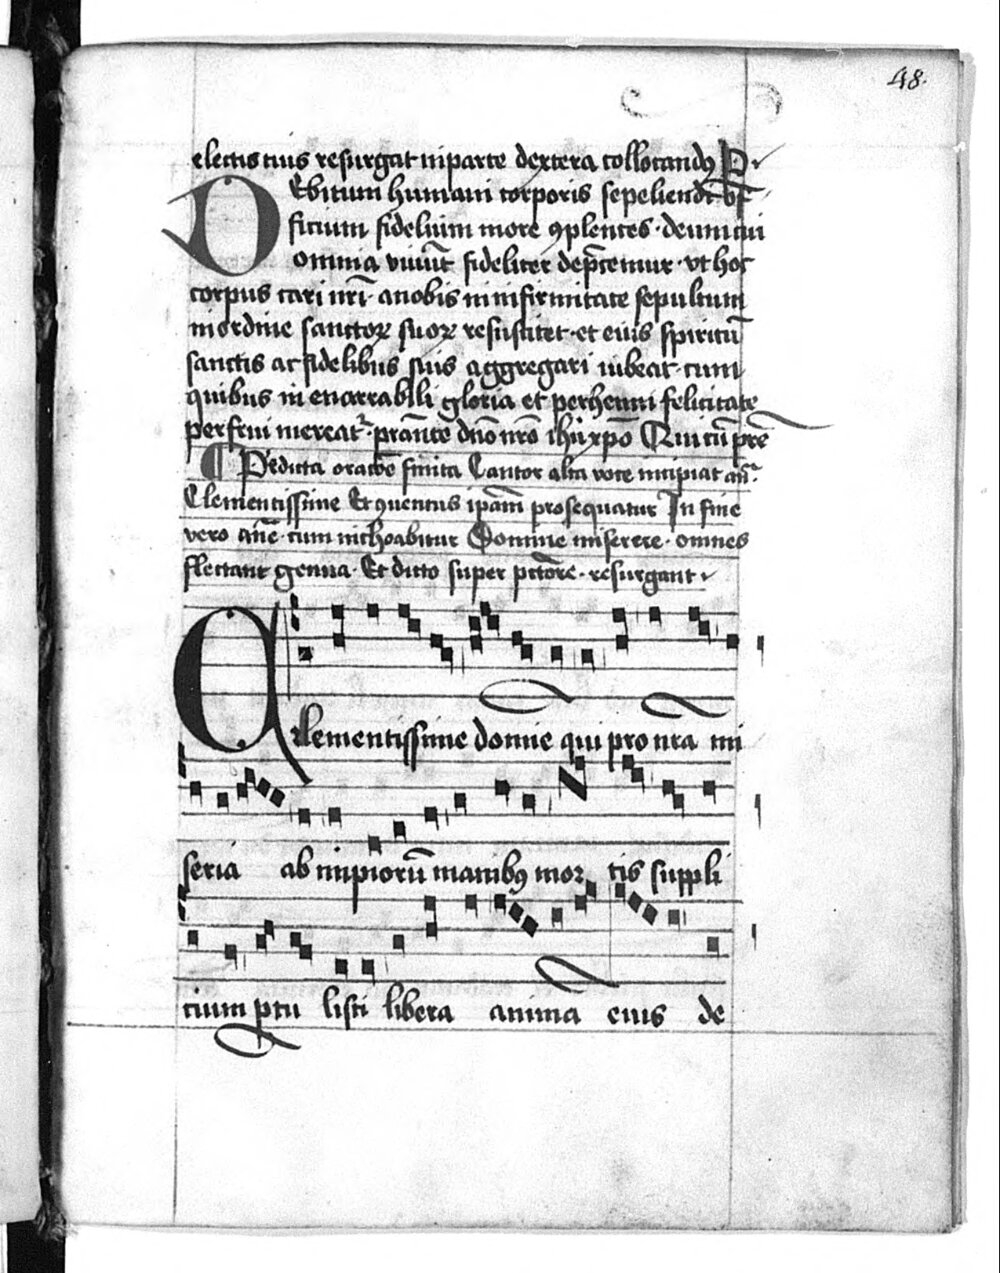 48.
electis tuis resurgat in parte dextera collocandꝯ P.
Ebitum humani corporis sepeliendi of
ficium fidelium more ꝯplentes · deum cui
omnia viuūt fideliter dep̄cemur · vt hoc
corpus cari nr̄i · a nobis in infirmitate sepultum
in ordine sanctoꝝ suoꝝ resuscitet · et eius spiritū
sanctis ac fidelibus suis aggregari iubeat · cum
quibus in enarrabili gloria et perhenni felicitate
perfrui mereat᷑ · p̄stante dn̄o nr̄o ih̄u xp̄o Qui cū pr̄e
¶ Predicta orac̄oe finita Cantor alta voce incipiat an̄.
Clementissime Et ꝯuentus ip̄am prosequatur In fine
vero an̄e · cum inchoabitur Domine miserere · omnes
flectant genua · Et dicto super pctōre · resurgant
Clementissime domine qui pro nr̄a mi
seria ab impiorū manibꝯ mor tis suppli
cium ptu listi libera anima eius de